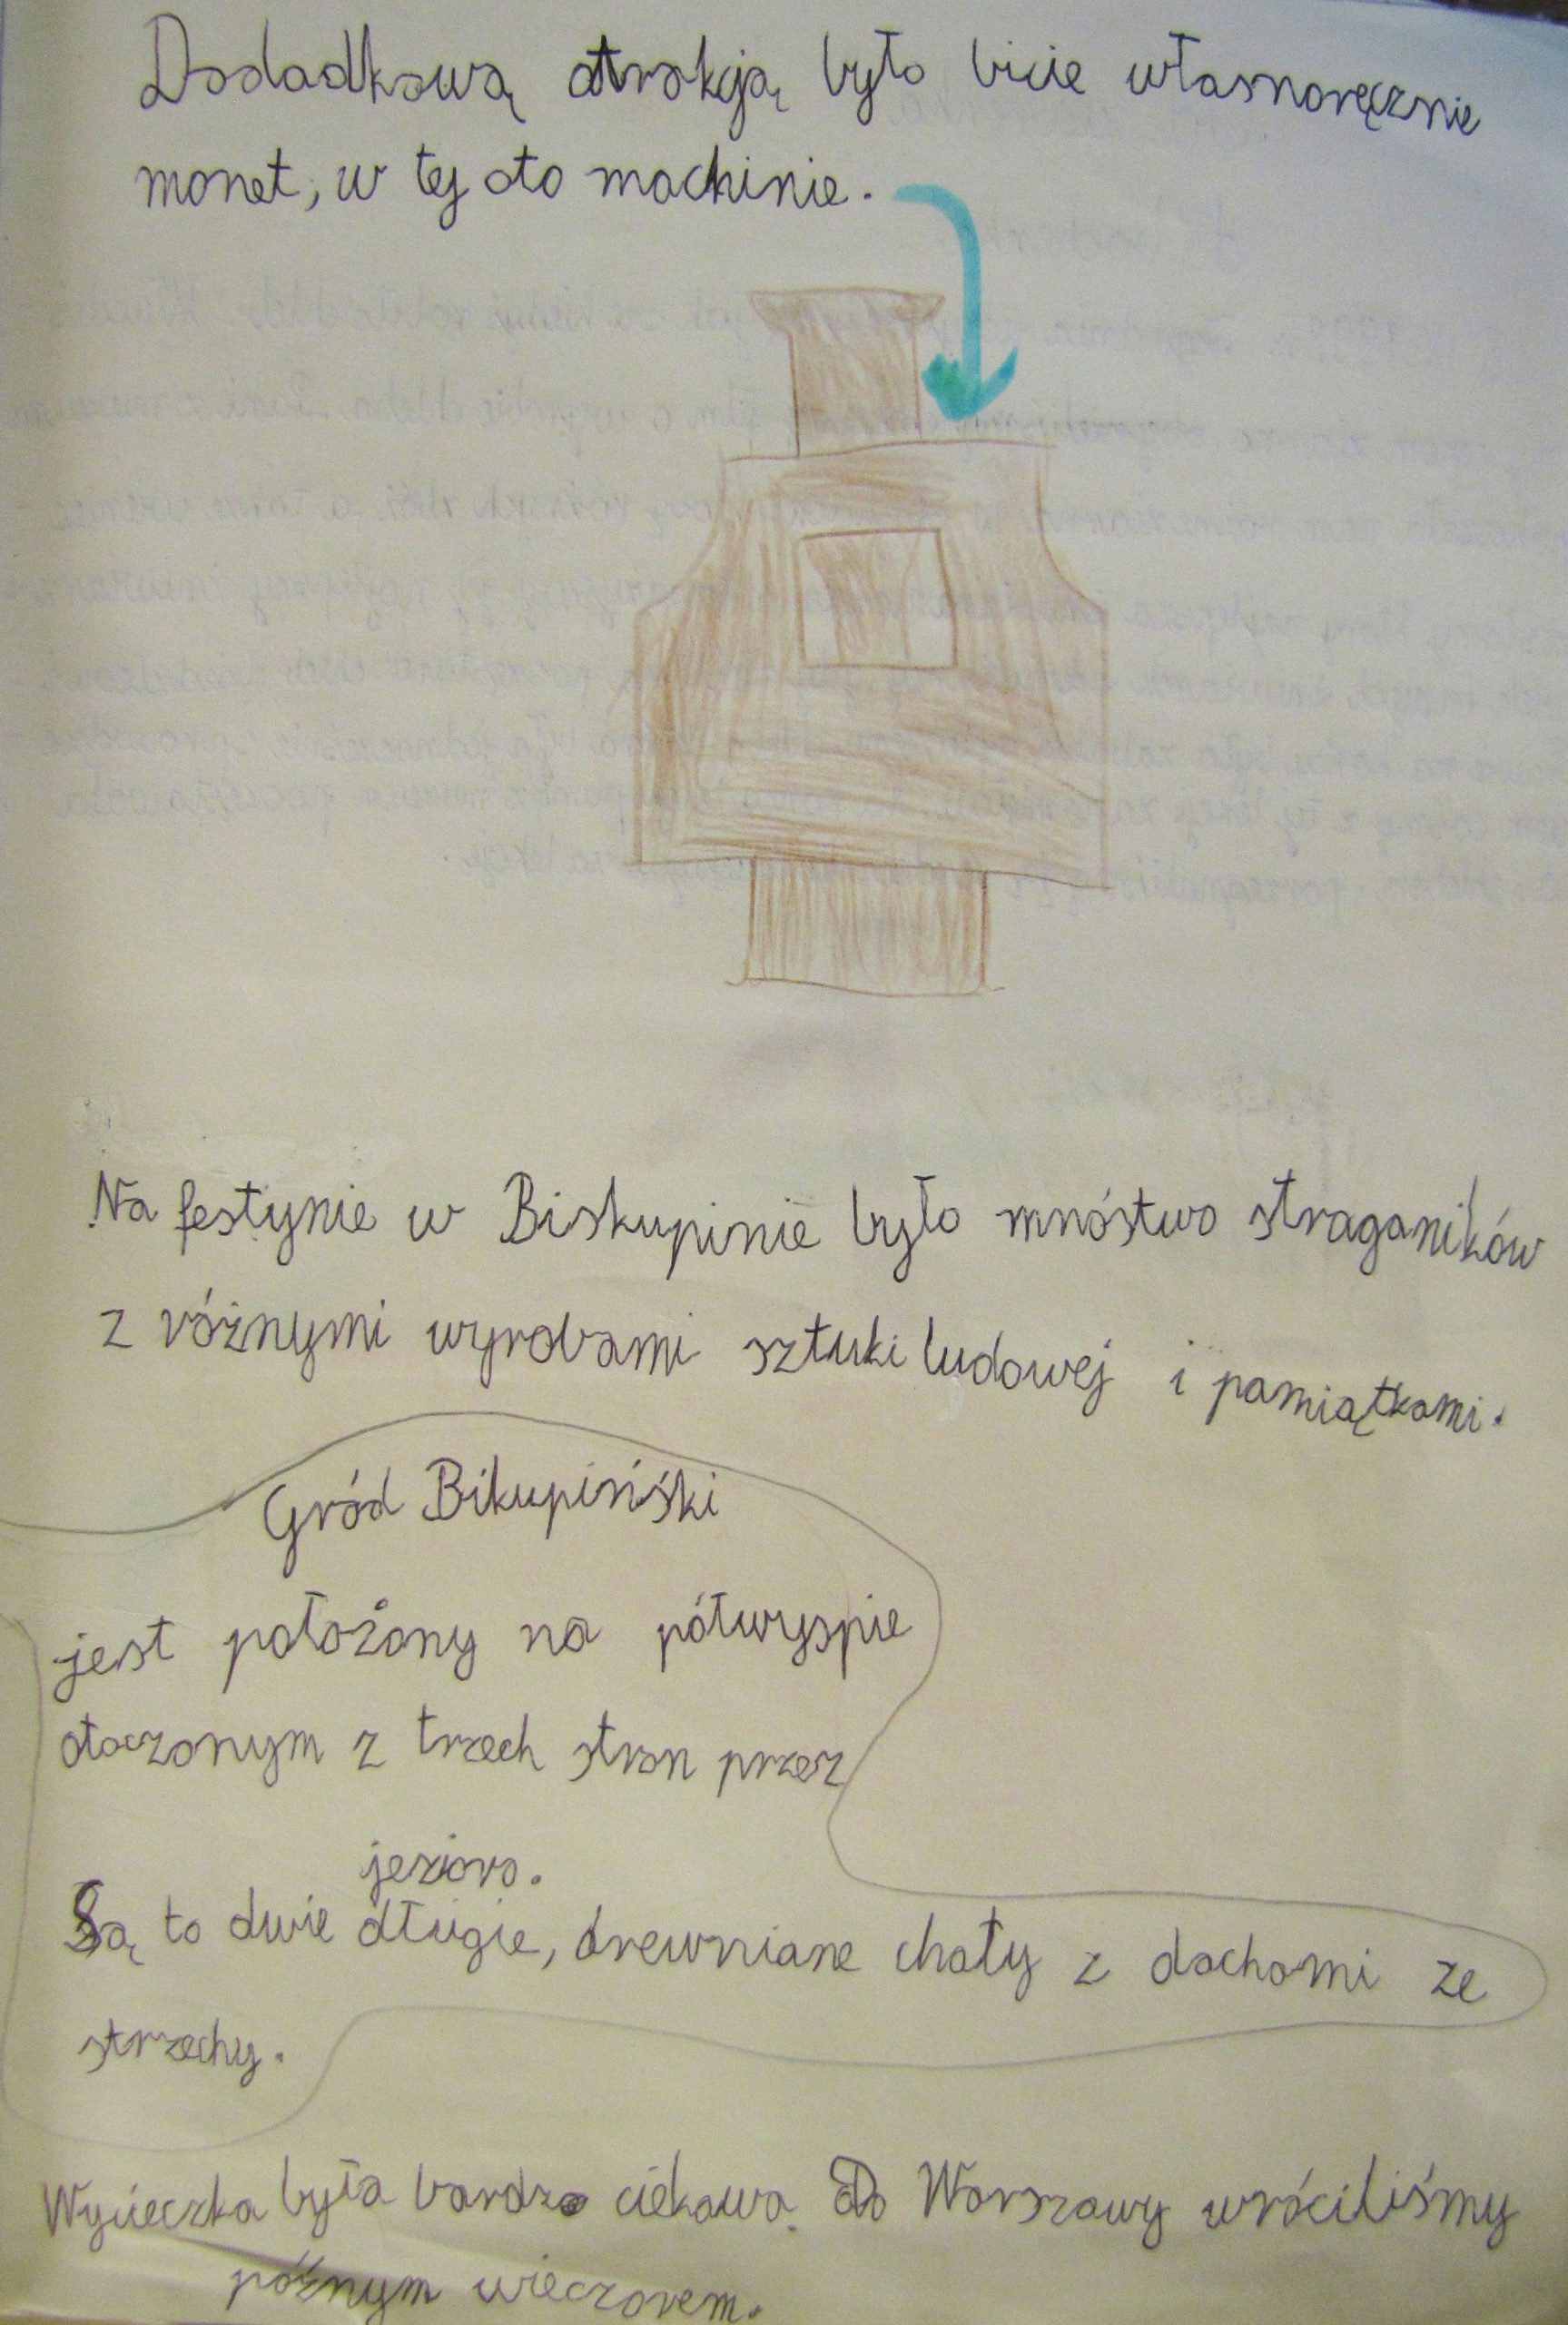 Dodadkową atrakcją było bicie własnoręcznie
monet, w tej oto machinie.
Na festynie w Biskupinie było mnóstwo straganików
z różnymi wyrobami sztuki ludowej i pamiątkami.
Gród Bikupińśki
jest położony na półwyspie
otoczonym z trzech stron przez
jezioro.
Są to dwie długie, drewniane chaty z dachami ze
strzechy.
Wycieczka była bardzo ciekawa. Do Warszawy wróciliśmy
późnym wieczorem.